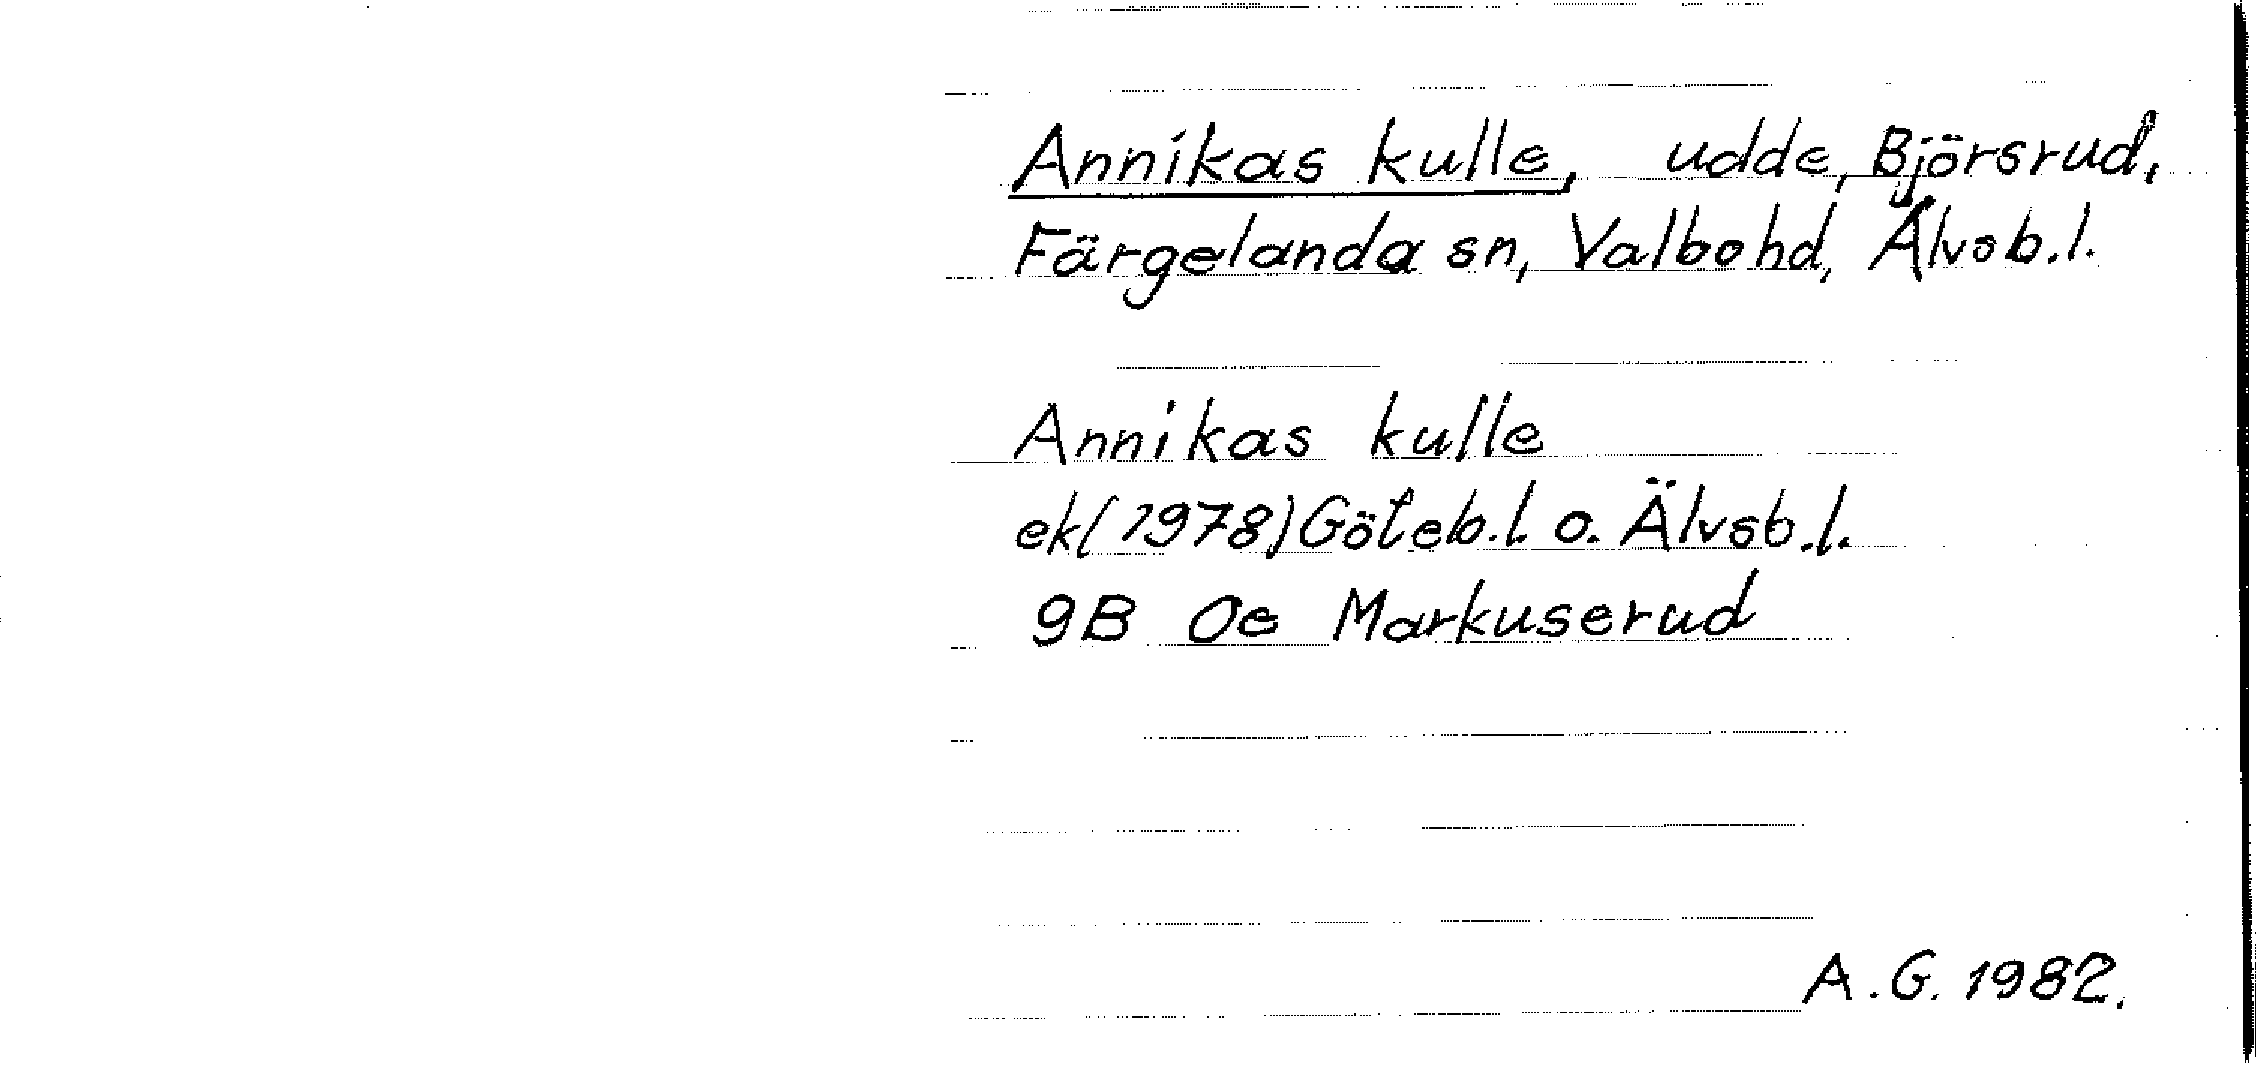 Annikas kulle, udde, Björsrud,
Färgelanda sn, Valbo hd, Älvsb.l.
Annikas kulle
ek(1978)Göteb.l. o. Älvsb.l.
9B 0e Markuserud
A.G. 1982.